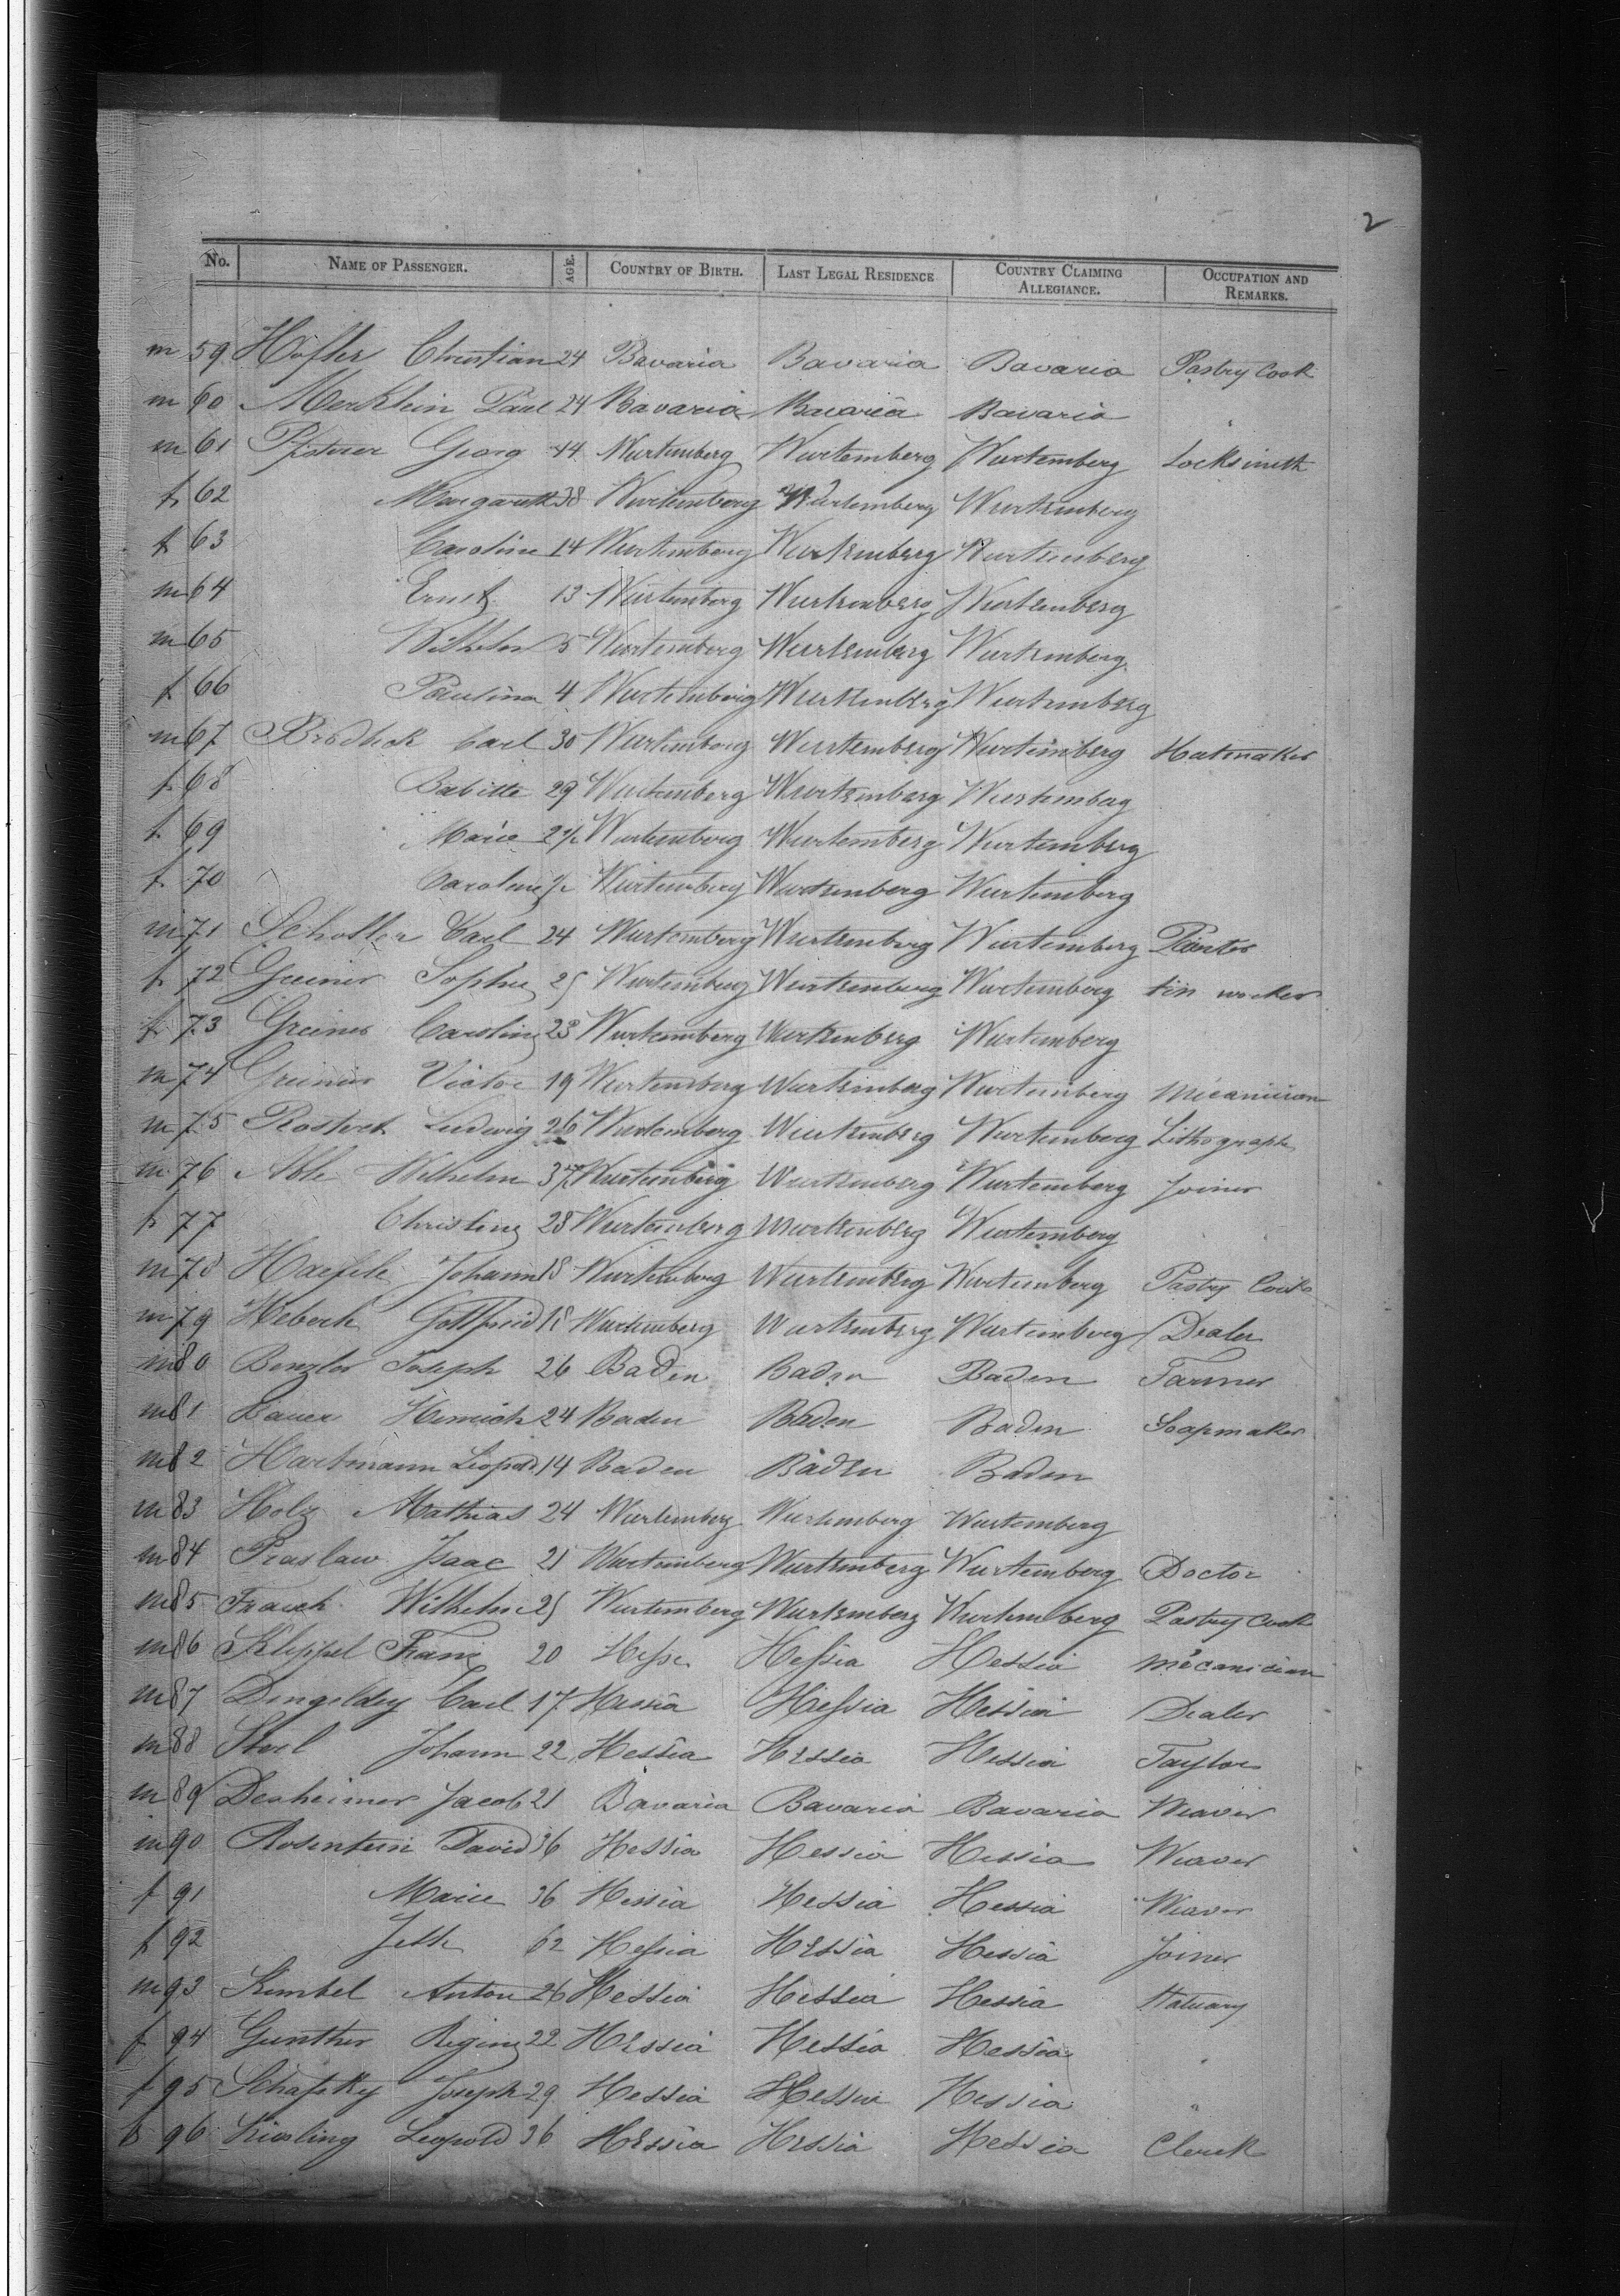 2
No. NAME OF PASSENGER. AGE. COUNTRY OF BIRTH. LAST LEGAL RESIDENCE COUNTRY CLAIMING ALLEGIANCE. OCCUPATION AND REMARKS.
m 59 Christian 24 Bavaria Bavaria Bavaria Pastry Cook
m 60 Merklein Paul 24 Bavaria Bavaria Bavaria "
m 61 Pfisterer Georg 44 Wurtemberg Wurtemberg Wurtemberg Locksmith
f 62 Margareth 38 Wurtemberg Wurtemberg Wurtemberg
f 63 Caroline 14 Wurtemberg Wurtemberg Wurtemberg
m 64 Ernst 13 Wurtemberg Wurtemberg Wurtemberg
m 65 Wilhelm 5 Wurtemberg Wurtemberg Wurtemberg
f 66 Paulina 4 Wurtemberg Wurtemberg Wurtemberg
m 67 Carl 30 Wurtemberg Wurtemberg Wurtemberg Hatmaker
f 68 Babitte 29 Wurtemberg Wurtemberg Wurtemberg
f 69 Marie 2 1/2 Wurtemberg Wurtemberg Wurtemberg
f 70 Caroline 1/2 Wurtemberg Wurtemberg Wurtemberg
m 71 Carl 24 Wurtemberg Wurtemberg Wurtemberg
f 72 Greiner Sophie 25 Wurtemberg Wurtemberg Wurtemberg tin worker
f 73 Greiner Caroline 23 Wurtemberg Wurtemberg Wurtemberg
m 74 Greiner Victor 19 Wurtemberg Wurtemberg Wurtemberg Mécanician
m 75 Ludwig 26 Wurtemberg Wurtemberg Wurtemberg Lithograph
m 76 Able Wilhelm 37 Wurtemberg Wurtemberg Wurtemberg Joiner
f 77 Christine 28 Wurtemberg Wurtemberg Wurtemberg
m 78 Haefele Johann 18 Wurtemberg Wurtemberg Wurtemberg Pastry Cook
m 79 Gottfried 18 Wurtemberg Wurtemberg Wurtemberg Dealer
m 80 Benzler Joseph 26 Baden Baden Baden Farmer
m 81 Bauer Heinrich 24 Baden Baden Baden Soapmaker
m 82 Hartmann Leopold 14 Baden Baden Baden
m 83 Holz Mathias 24 Wurtemberg Wurtemberg Wurtemberg
m 84 Praslaw Isaac 21 Wurtemberg Wurtemberg Wurtemberg Doctor
m 85 Frasch Wilhelm 25 Wurtemberg Wurtemberg Wurtemberg Pastry Cook
m 86 Kleppel Franz 20 Hesse Hessia Hessia mécanician
m 87 Dingeldey Carl 17 Hessia Hessia Hessia Dealer
m 88 Johann 22 Hessia Hessia Hessia Taylor
m 89 Dexheimer Jacob 21 Bavaria Bavaria Bavaria Weaver
m 90 Rosenstein David 36 Hessia Hessia Hessia Weaver
f 91 Marie 36 Hessia Hessia Hessia Weaver
f 92 62 Hessia Hessia Hessia Joiner
m 93 Kimbel Anton 26 Hessia Hessia Hessia Statuary
f 94 Gunther Regina 22 Hessia Hessia Hessia "
f 95 Schafsky Joseph 29 Hessia Hessia Hessia "
f 96 Kiesling Leopold 36 Hessia Hessia Hessia Clerck